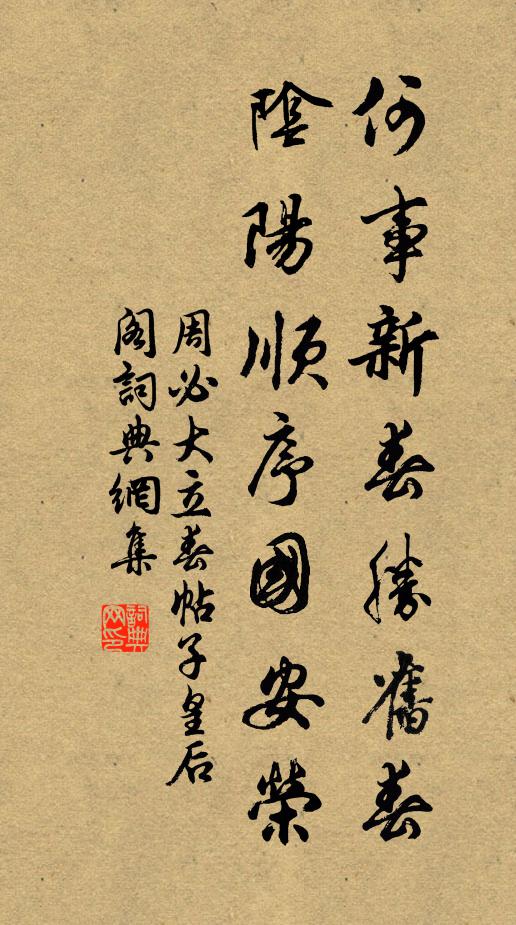 何事新春勝舊春
陰陽順序國安榮
周必大立春帖子皇后
閣詞典網集
詞典網印